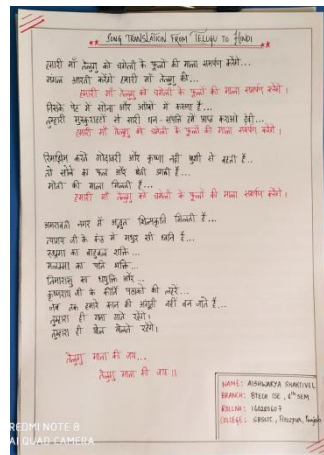 SONG TRANSLATION FROM TELUGU TO HINDI
हमारी माँ तेलुगु को चमेली के फूलों की माला समर्पण करेंगे...
मंगल आरती करेंगे हमारी माँ तेलुगु की...
हमारी माँ तेलुगु को चमेली के फूलों की माला समर्पण करेंगे।
जिसके पेट में सोना और आँखों में करुणा है...
तुम्हारी मुस्कुराहटों से सारी धन-संपत्ति हमें प्राप्त कराओ देवी...
हमारी माँ तेलुगु को चमेली के फूलों की माला समर्पण करेंगे।
गोदावरी और कृष्णा नदी खुशी से बहती हैं...
तो सोने का फल और खेती आती है...
मोती की माला मिलती हैं...
हमारी माँ तेलुगु को चमेली के फूलों की माला समर्पण करेंगे।
अमरावती नगर में अद्भुत शिल्पकृति मिलती हैं...
त्यागराज जी के कंठ में मधुर सी ध्वनि है...
रुद्रमा का बाहुबल शक्ति...
मल्लम्मा का पति भक्ति...
तिमारासु का और...
कृष्णराय जी के कीर्ति पताकों की लहरें...
जब तक हमारे कान की अंगूठी नहीं बन जाते हैं...
तुम्हारा ही गाना गाते रहेंगे।
तुम्हारा ही खेल खेलते रहेंगे।
तेलुगु माता की जय...
तेलुगु माता की जय।।
NAME: AISHWARYA SHAKTIVEL
BRANCH: BTECH CSE, 6TH SEM
ROLLNO:
COLLEGE: SBSSTC, Firozpur, Punjab
REDMI NOTE 8
AI QUAD CAMERA